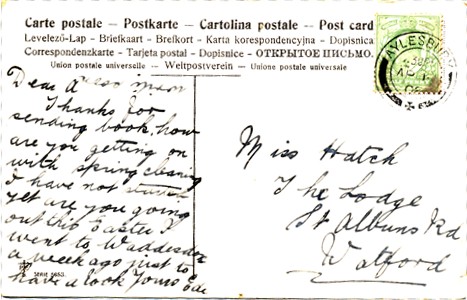 Carte postale – Postkarte – Cartolina postale – Post card
Levelező-Lap – Briefkaart – Brefkort – Karta korespondencyjna – Dopisnica
Correspondenzkarte – Tarjeta postal – Dopisnice – ОТКРЫТОЕ ПИСЬМО.
Union postale universelle – Weltpostverein – Union postale universelle
AYLESBURY
Dear
Thanks for
sending book, how
are you getting on
with spring cleaning
I have not
yet are you going
out this Easter I
went to Waddesdon
a week ago just to
have a look Yours
Serie
Miss Hatch
The Lodge
St Albans Rd
Watford